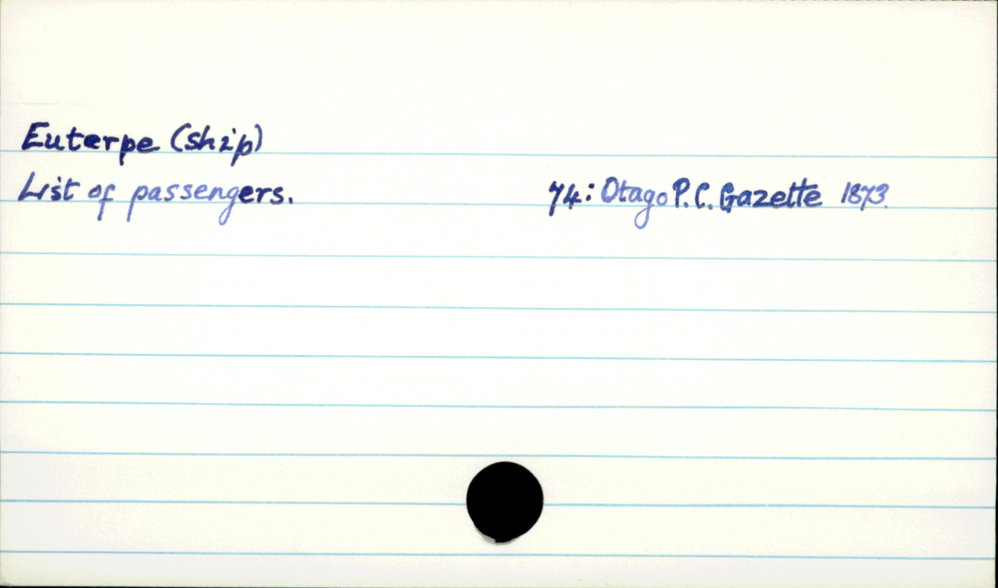 Euterpe (ship)
List of passengers. 74: Otago P.C. Gazette 1873.